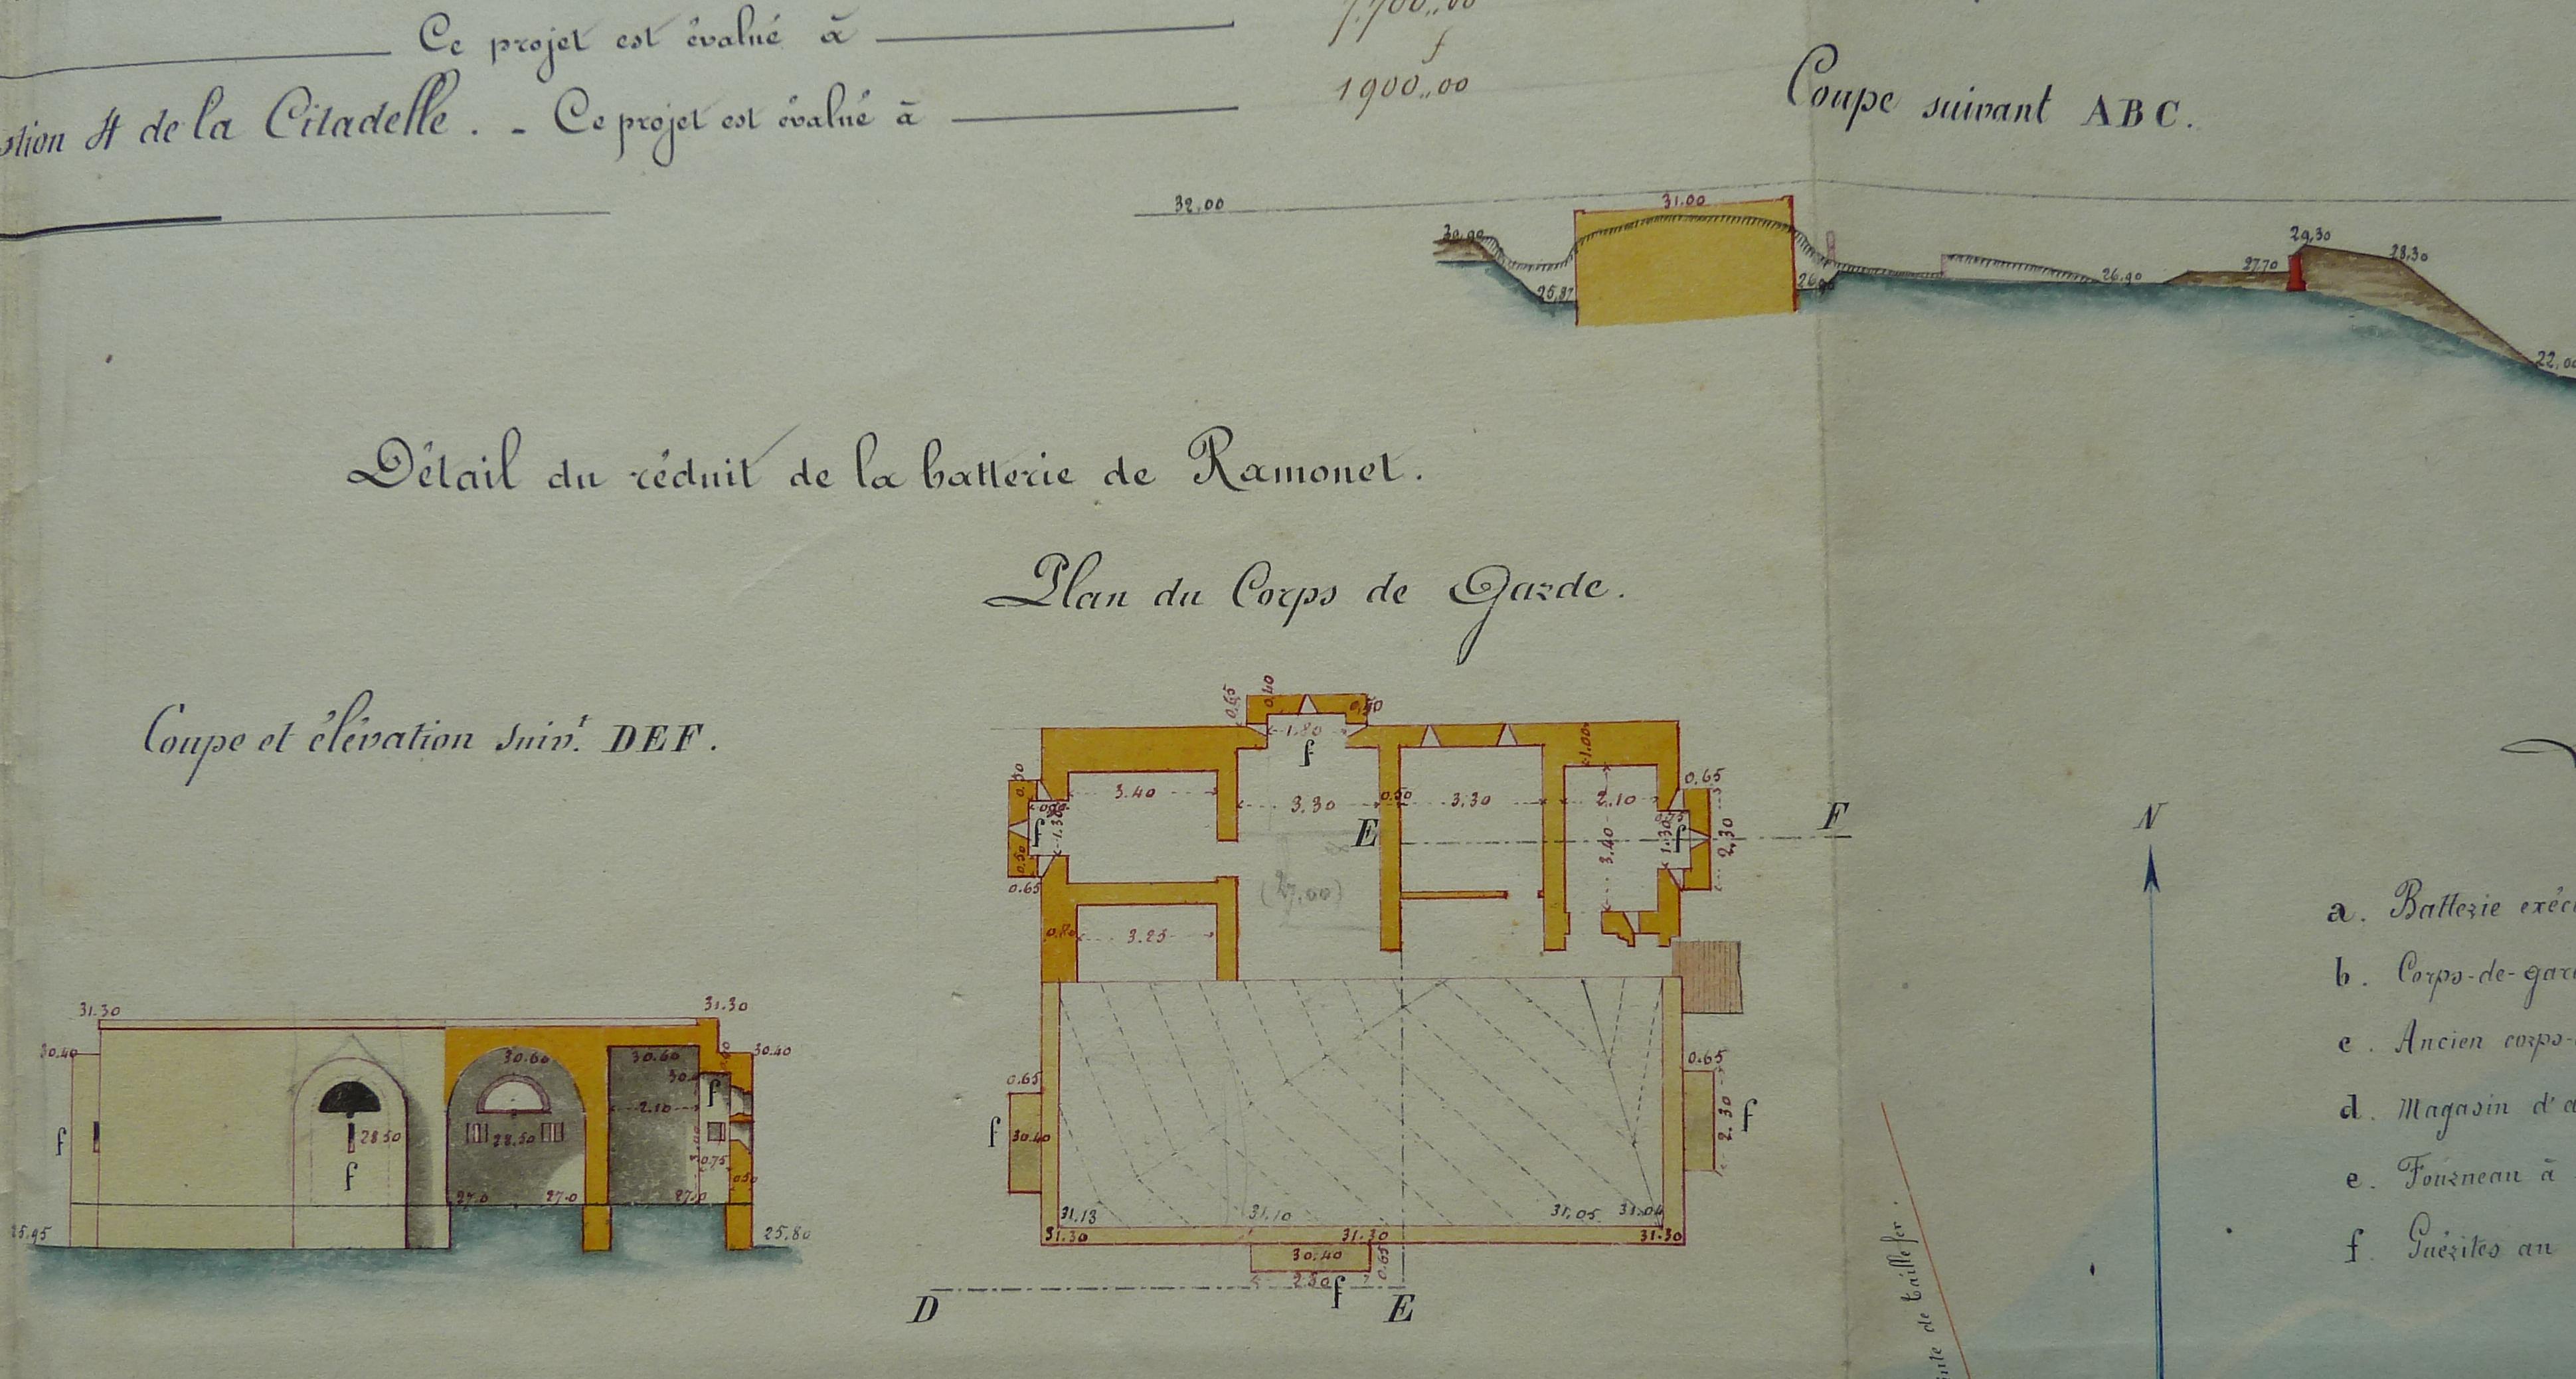 Ce projet est évalué à
de la Citadelle. - Ce projet est évalué à
1900,,00
Coupe suivant ABC.
32.00
31.00
30.90
25.87
26.90
27.70
29.30
28.30
22,00
Détail du réduit de la batterie de Ramonet.
Plan du Corps de Garde.
Coupe et élévation suiv.t DEF.
0.65
0.40
1.80
f
1.00
0.30
3.40
3.30
0.50
3.30
2.10
0.65
f
1.30
E
3.40
1.30
f
2.30
F
0.50
0.65
(27.00)
0.80
3.25
0.65
f
30.40
0.65
2.30
f
31.13
31.10
31.05
31.30
31.30
31.30
30.40
0.65
2.50
f
D
E
31.30
31.30
30.40
30.60
30.60
30.40
f
2.10
f
28.50
28.50
f
0.75
27.0
27.0
27.0
25.95
25.80
N
a. Batterie
b. Corps-de-
c. Ancien corps-
d. Magasin d'
e. Fourneau à
f. Guérites au
de taillefer.